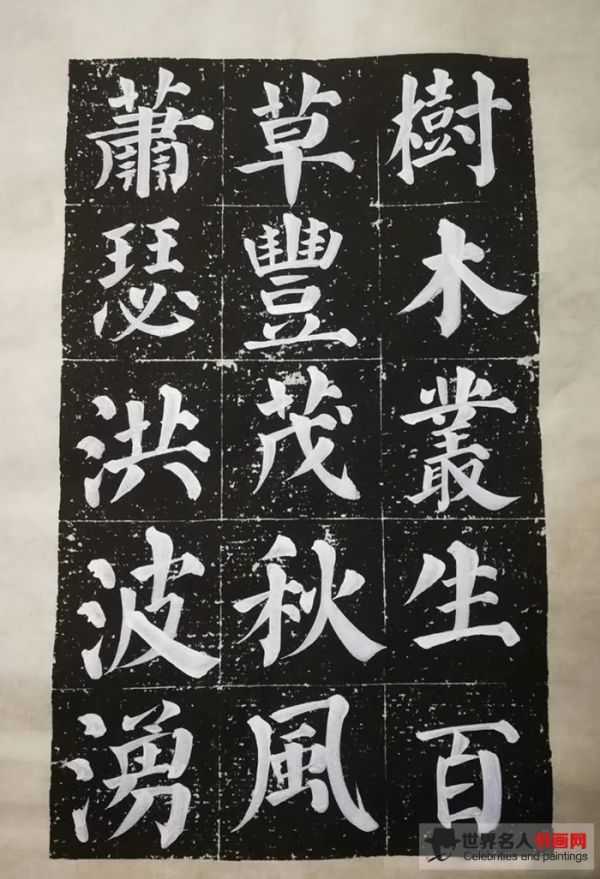 樹木叢生百
草豐茂秋風
蕭瑟洪波湧
世界名人書画网
Celebrities and paintings